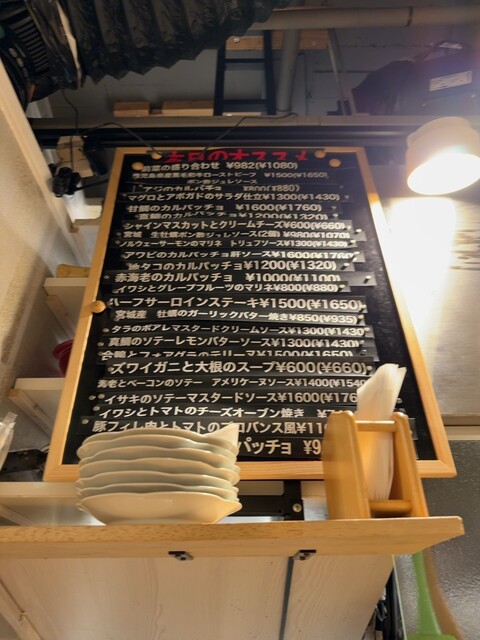 本日のオススメ
前菜の盛り合わせ ¥982(¥1080)
鹿児島県産黒毛和牛ローストビーフ ¥1500(¥1650)
ポン酢ジュレソース
アジのカルパッチョ ¥800(¥880)
マグロとアボガドのサラダ仕立¥1300(¥1430)
甘鯛のカルパッチョ ¥1600(¥1760)
真鯛のカルパッチョ ¥1200(¥1320)
シャインマスカットとクリームチーズ¥600(¥660)
宮城 生牡蠣ポン酢ジュレソース(2個) ¥980(¥1078)
ノルウェーサーモンのマリネ トリュフソース¥1300(¥1430)
アワビのカルパッチョ肝ソース¥1600(¥1760)
タコのカルパッチョ¥1200(¥1320)
赤海老のカルパッチョ ¥1000(¥1100)
イワシとグレープフルーツのマリネ¥800(¥880)
ハーフサーロインステーキ¥1500(¥1650)
宮城産 牡蠣のガーリックバター焼き¥850(¥935)
タラのポアレマスタードクリームソース¥1300(¥1430)
真鯛のソテーレモンバターソース¥1300(¥1430)
合鴨とフォアグラのテリーヌ¥1500(¥1650)
ズワイガニと大根のスープ¥600(¥660)
海老とベーコンのソテー アメリケーヌソース¥1400(¥1540
イサキのソテーマスタードソース¥1600(¥176
イワシとトマトのチーズオーブン焼き
豚フィレ肉とトマトのプロバンス風¥11
パッチョ ¥9